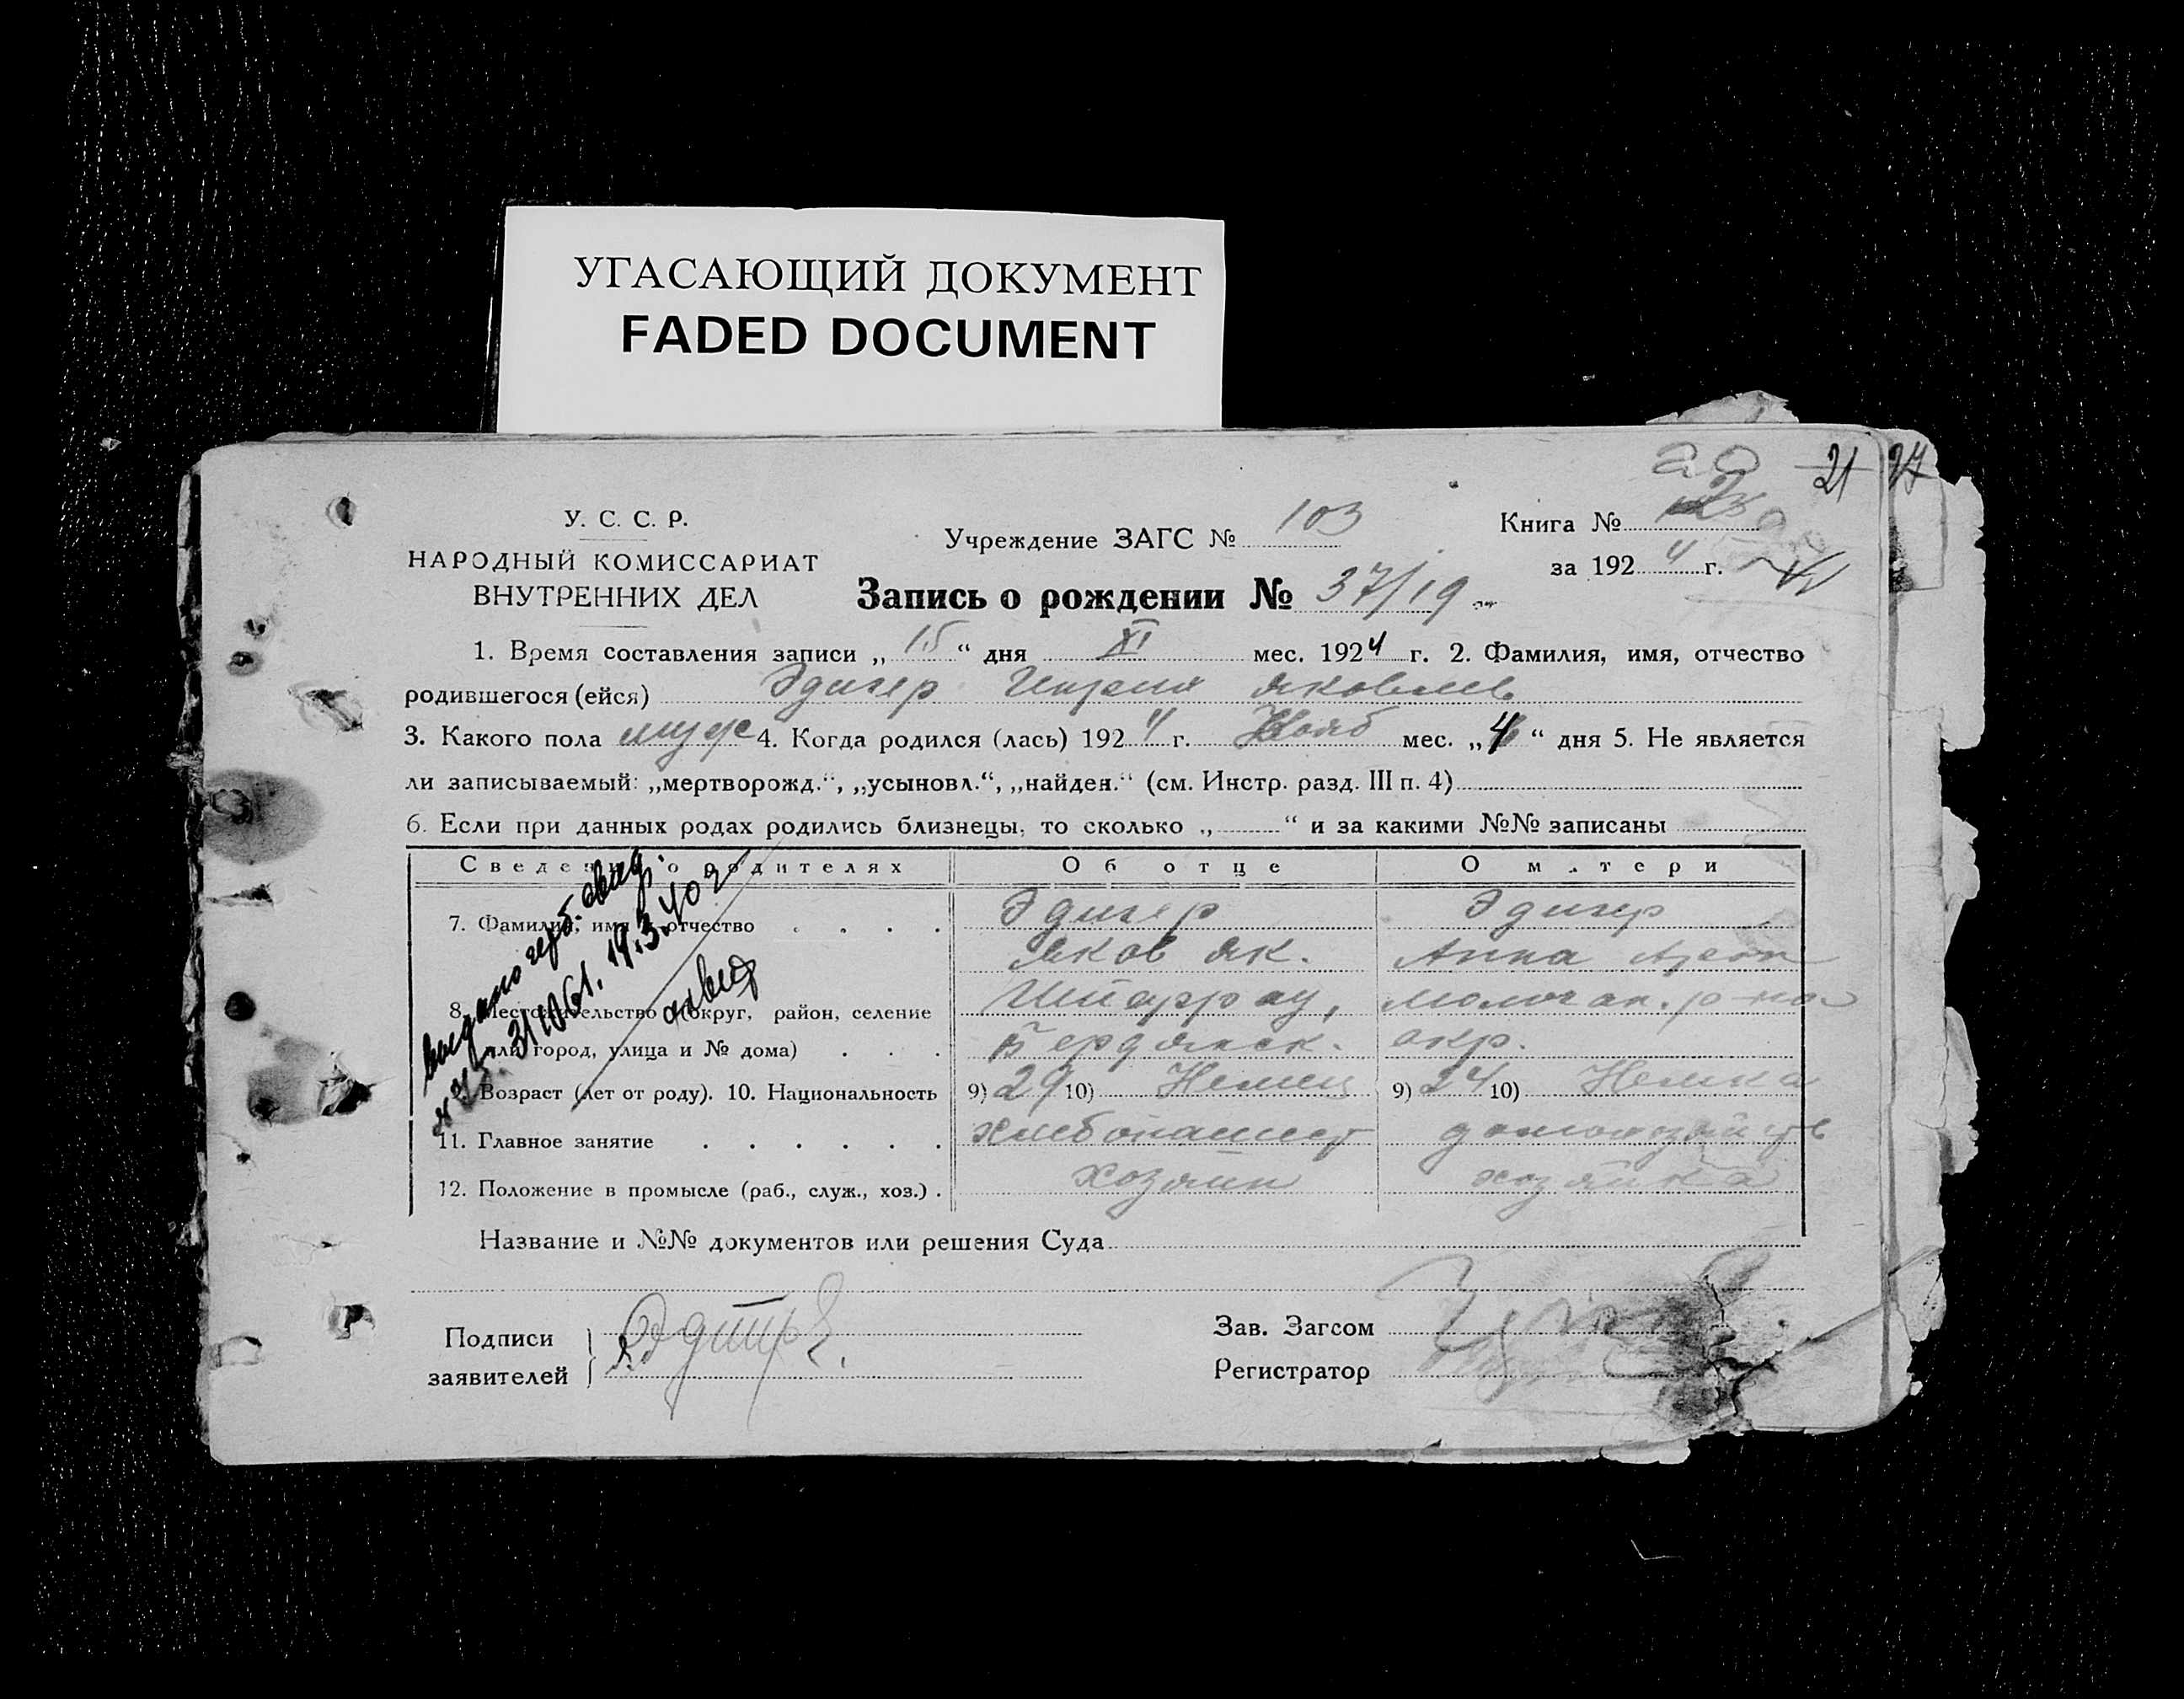 УГАСАЮЩИЙ ДОКУМЕНТ
FADED DOCUMENT
21
У. С. С. Р.
НАРОДНЫЙ КОМИССАРИАТ
ВНУТРЕННИХ ДЕЛ
Учреждение ЗАГС № 103
Книга №
за 1924 г.
Запись о рождении № 37/19
1. Время составления записи „15“ дня XI мес. 1924 г. 2. Фамилия, имя, отчество
родившегося (ейся) Эдигер Яковлев
3. Какого пола муж 4. Когда родился (лась) 1924 г. Нояб мес. „4“ дня 5. Не является
ли записываемый: „мертворожд.“, „усыновл.“, „найден.“ (см. Инстр. разд. III п. 4)
6. Если при данных родах родились близнецы, то сколько „ “ и за какими №№ записаны
Сведения о родителях Об отце О м тери
7. Фамилия, имя, отчество Эдигер Эдигер
Яков Як. Анна
8. Местожительство (округ, район, селение Шпаррау, Молочан. р-на
или город, улица и № дома) Бердянск. окр.
9. Возраст (лет от роду). 10. Национальность 9) 29 10) Немец 9) 24 10) Немка
11. Главное занятие хлебопашест
12. Положение в промысле (раб., служ., хоз.) хозяин хозяйка
Название и №№ документов или решения Суда
Подписи
заявителей
Зав. Загсом
Регистратор